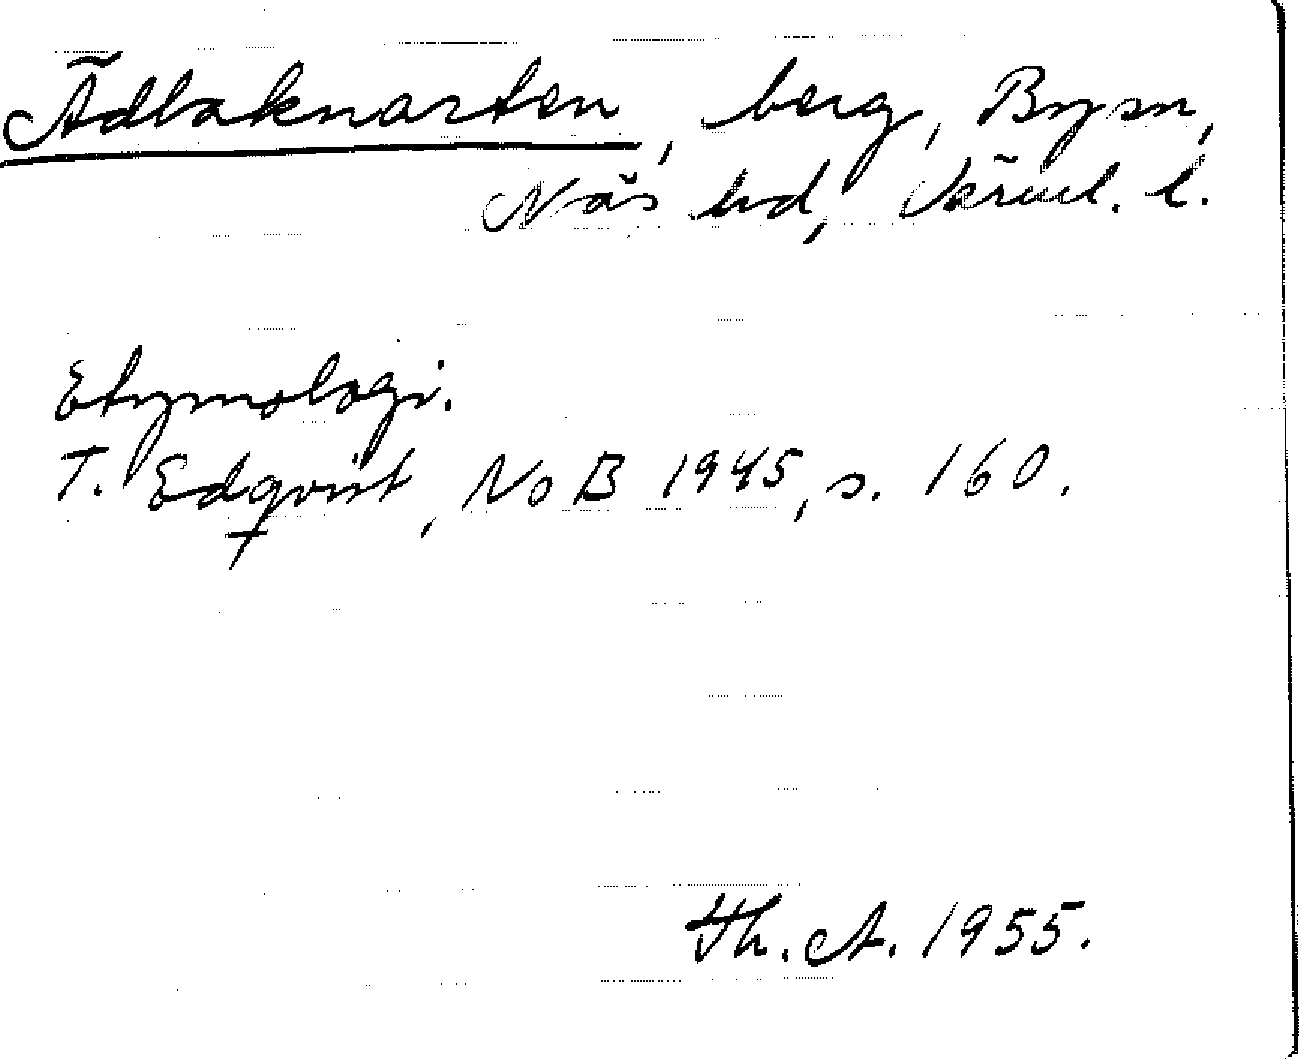 Ädlaknarten, berg, By sn,
Näs hd, Värml. l.
Etymologi.
T. Edqvist, NoB 1945, s. 160.
Th. A. 1955.